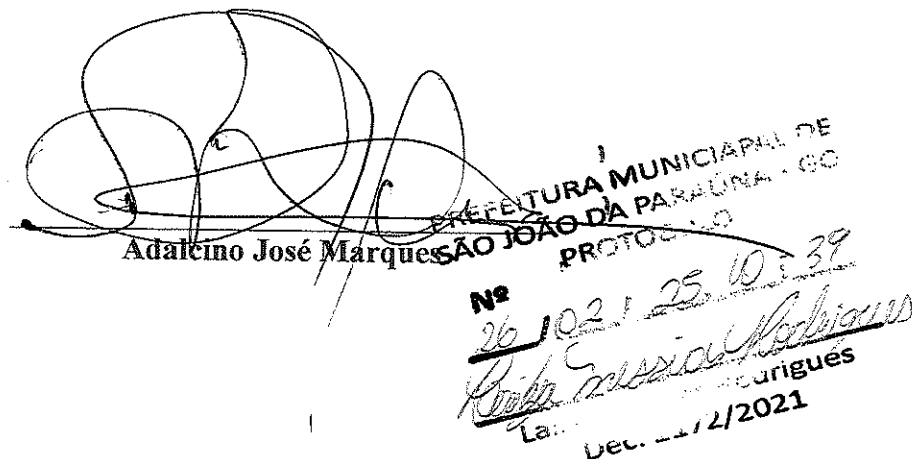 Adalcino José Marques
PREFEITURA MUNICIAPAL DE
SÃO JOÃO DA PARAÚNA - GO
PROTOCOLO
Nº
26 / 02 / 25 10:39
Messias Rodrigues
Rodrigues
Dec. /2021